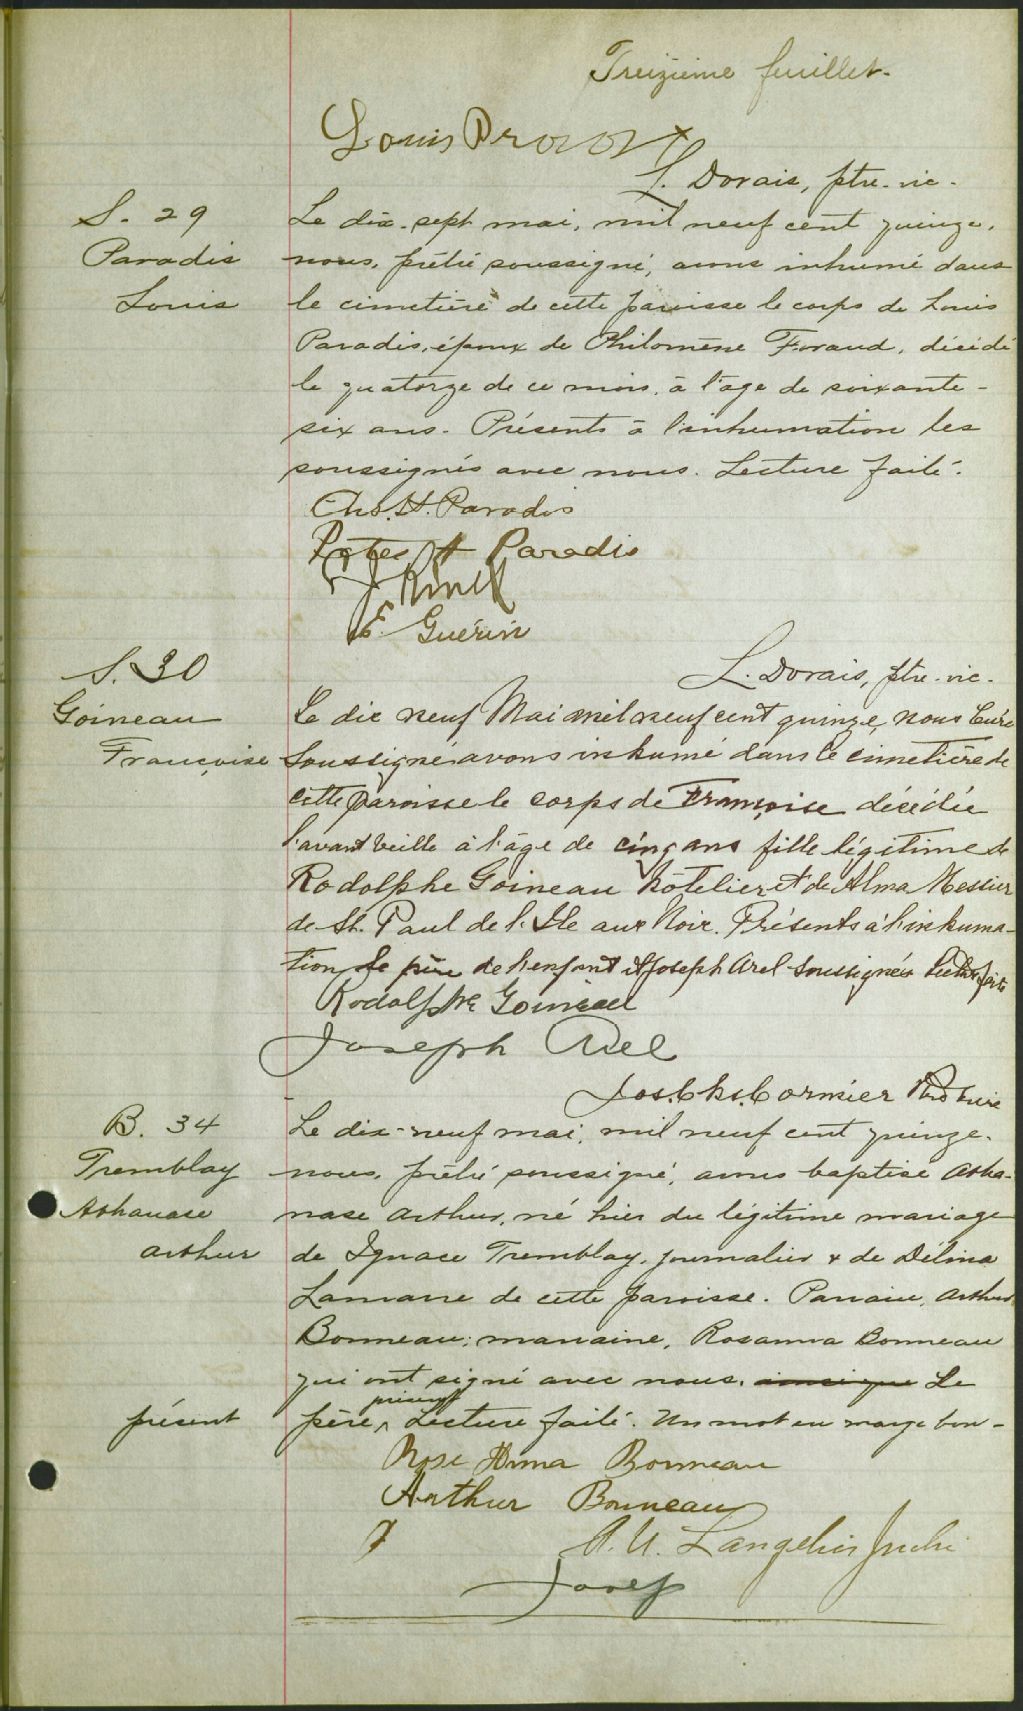 Treizième feuillet.
Louis Provost
L. Dorais, ptre. vic.
S. 29
Paradis
Louis
Le dix-sept mai, mil neuf cent quinze,
nous, prêtre soussigné, avons inhumé dans
le cimetière de cette paroisse le corps de Louis
Paradis, époux de Philomène Foraud, décédé
le quatorze de ce mois, à l'âge de soixante-
six ans. Présents à l'inhumation les
soussignés avec nous. Lecture faite.
Chs. H. Paradis
H Paradis
E. Guérin
L. Dorais, ptre. vic.
S. 30
Goineau
Françoise
Le dix neuf Mai mil neuf cent quinze, nous Curé
Soussigné avons inhumé dans le cimetière de
cette paroisse le corps de Françoise décédée
l'avant veille à l'âge de cinq ans fille légitime de
Rodolphe Goineau hôtelier et de Alma Messier
de St. Paul de l'Ile aux Noix. Présents à l'inhuma-
tion, le père de l'enfant et Joseph Arel soussignés Lecture faite
Rodolphe Goineau
Joseph Arel
Jos. Chs. Cormier Ptre Curé
B. 34
Tremblay
Athanase
Arthur
Le dix-neuf mai, mil neuf cent quinze,
nous, prêtre soussigné, avons baptisé Atha-
nase Arthur, né hier du légitime mariage
de Ignace Tremblay, journalier & de Délina
Lamarre de cette paroisse. Parrain, Arthur
Bonneau; marraine, Rosanna Bonneau
qui ont signé avec nous. ainsi que Le
présent
père, Lecture faite. Un mot en marge bon-
présent
Rose Anna Bonneau
Arthur Bonneau
A. U. Langelier
Josep